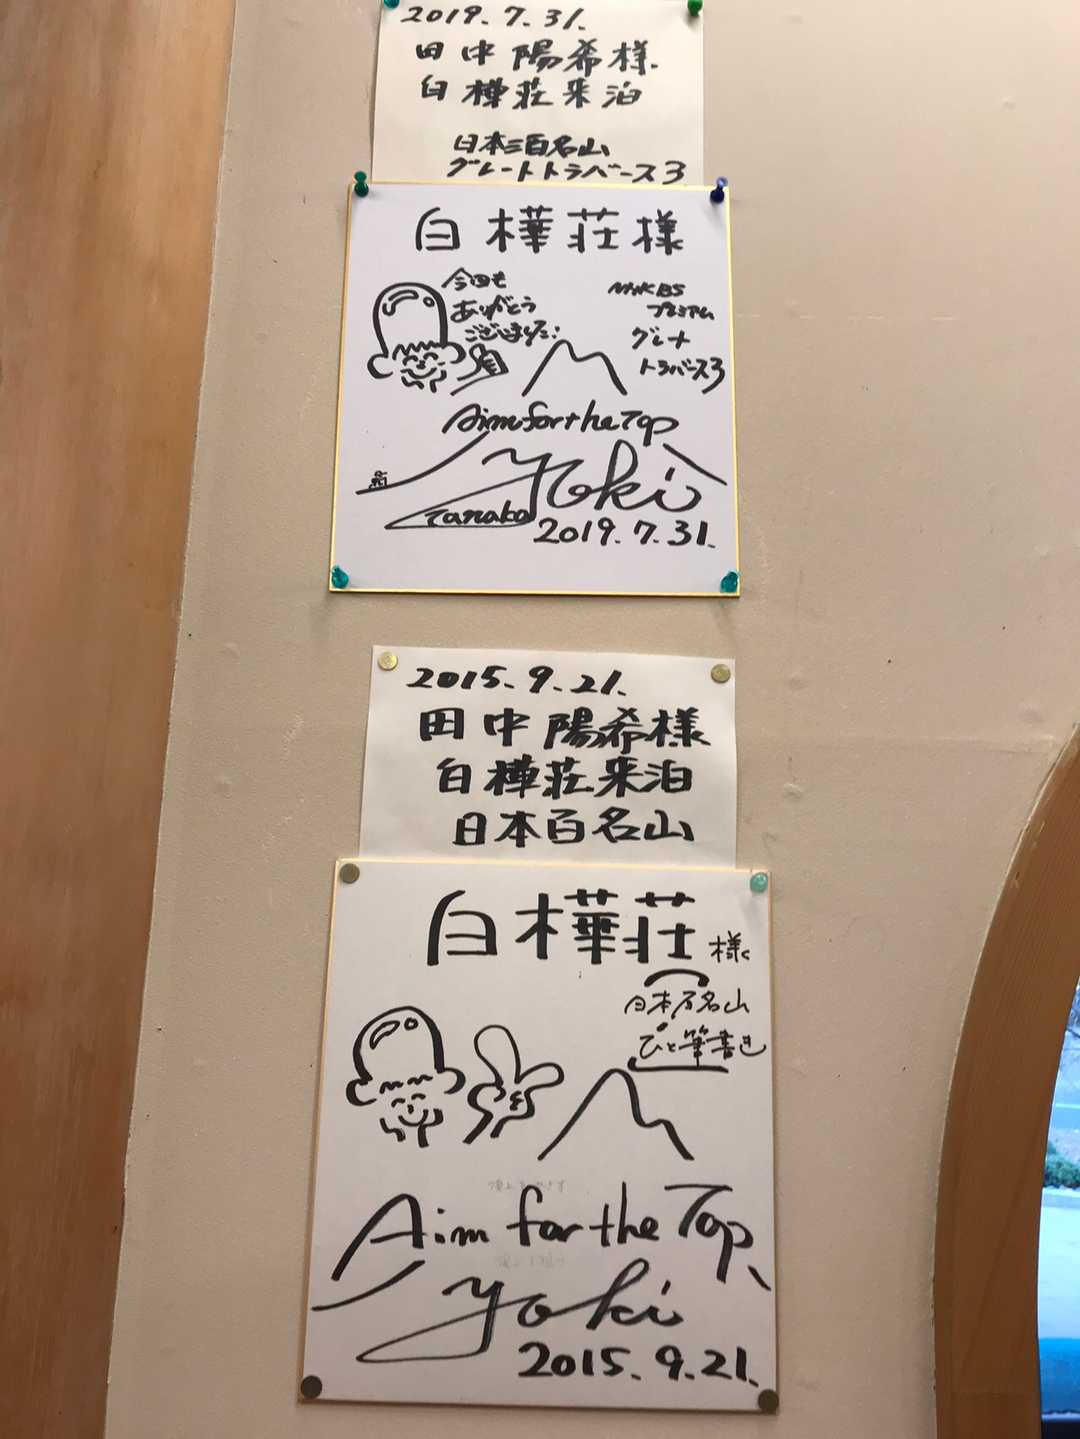 2019.7.31.
田中陽希様
白樺荘来泊
日本三百名山
グレートトラバース3
白樺荘様
今回も
ありがとう
ございました!
NHK BS
プレミアム
グレート
トラバース3
Aim for the Top
Yoki
Tanaka
2019.7.31.
2015.9.21.
田中陽希様
白樺荘来泊
日本百名山
白樺荘様
日本百名山
ひと筆書き
Aim for the Top
Yoki
2015.9.21.